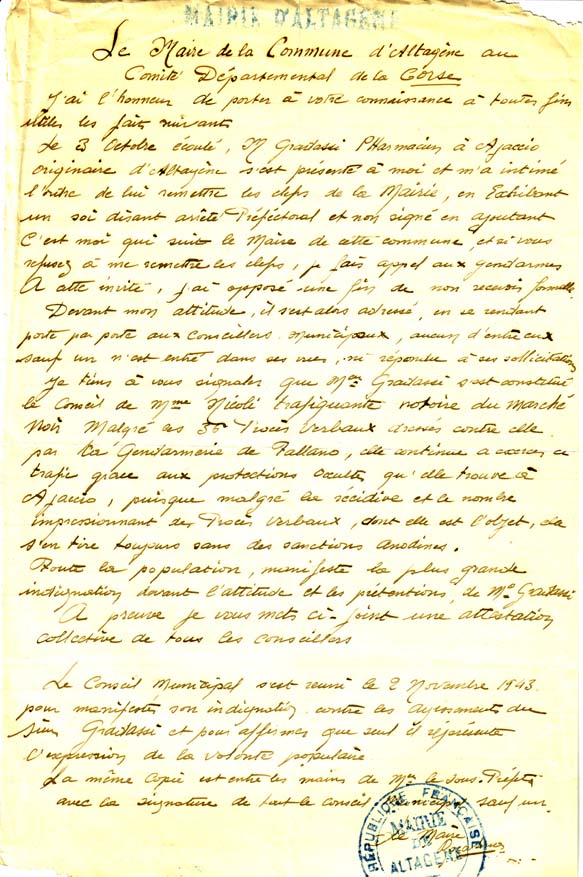 MAIRIE D'ALTAGÈNE
Le Maire de la Commune d'Altagène au
Comité Départemental de la Corse
J'ai l'honneur de porter à votre connaissance à toutes fins
utiles les faits suivants
Le 3 Octobre écoulé, M Gradassi Pharmacien à Ajaccio
originaire d'Altagène s'est présenté à moi et m'a intimé
l'ordre de lui remettre les clefs de la Mairie, en Exhibant
un soi disant arrêté Préfectoral et non signé en ajoutant
C'est moi qui suis le Maire de cette commune, et si vous
refusez à me remettre les clefs, je fais appel aux gendarmes
A cette invite, j'ai opposé une fin de non recevoir formelle.
Devant mon attitude, il s'est alors adressé, en se rendant
porte par porte aux conseillers municipaux, aucun d'entre eux
sauf un n'est entré dans ses vues, ni répondu à ses sollicitations
Je tiens à vous signaler que Mr Gradassi s'est constitué
le Conseil de Mme Nicoli trafiquante notoire du Marché
Noir Malgré les 36 Procès Verbaux dressés contre elle
par la Gendarmerie de Tallano, elle continue à exercer ce
trafic grâce aux protections occultes qu'elle trouve à
Ajaccio, puisque malgré la récidive et le nombre
impressionnant des Procès verbaux, dont elle est l'objet, elle
s'en tire toujours sans des sanctions anodines.
Toute la population, manifeste la plus grande
indignation devant l'attitude et les prétentions, de Mr Gradassi
A preuve je vous mets ci-joint une attestation
collective de tous les conseillers
Le Conseil Municipal s'est réuni le 2 Novembre 1943
pour manifester son indignation contre les agissements du
sieur Gradassi et pour affirmer que seul il représente
l'expression de la volonté populaire
La même Copie est entre les mains de Mr le Sous-Préfet
avec la signature de tout le conseil Municipal sauf un.
Le Maire
RÉPUBLIQUE FRANÇAISE
MAIRIE
DE
ALTAGÈNE